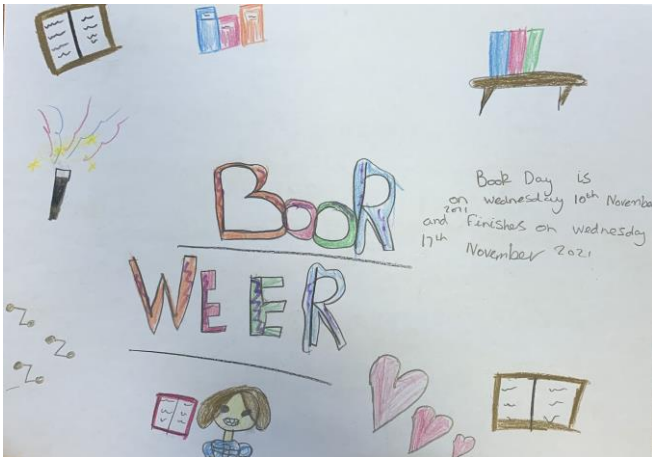 BOOK
WEEK
Book Day is
on wednesday 10th November
2021
and finishes on wednesday
17th November 2021